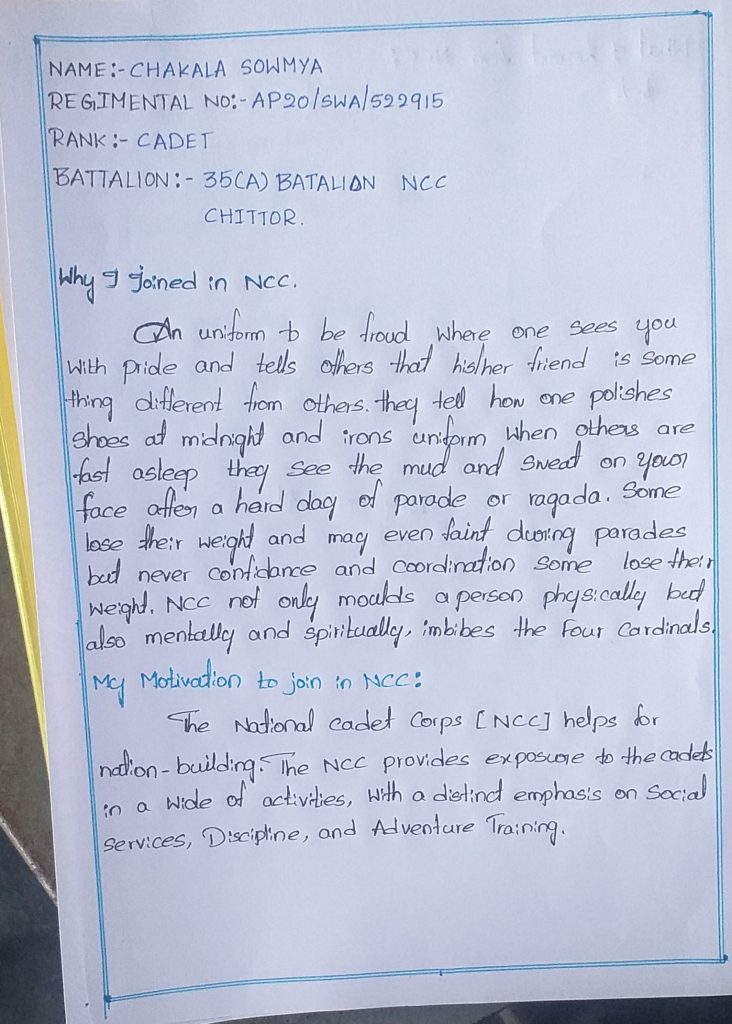 NAME:- CHAKALA SOWMYA
REGIMENTAL NO:- AP20/SWA/522915
RANK:- CADET
BATTALION:- 35(A) BATALION NCC
CHITTOR.
Why I joined in NCC.
An uniform to be froud where one sees you
with pride and tells others that his/her friend is some
thing different from others. they tell how one polishes
shoes at midnight and irons uniform when others are
fast asleep they see the mud and sweat on your
face after a hard day of parade or ragada. Some
lose their weight and may even faint during parades
but never confidance and coordination some lose their
weight. NCC not only moulds a person physically but
also mentally and spiritually, imbibes the four Cardinals.
My Motivation to join in NCC:
The National cadet Corps [NCC] helps for
nation-building. The NCC provides exposure to the cadets
in a wide of activities, with a distinct emphasis on Social
services, Discipline, and Adventure Training.